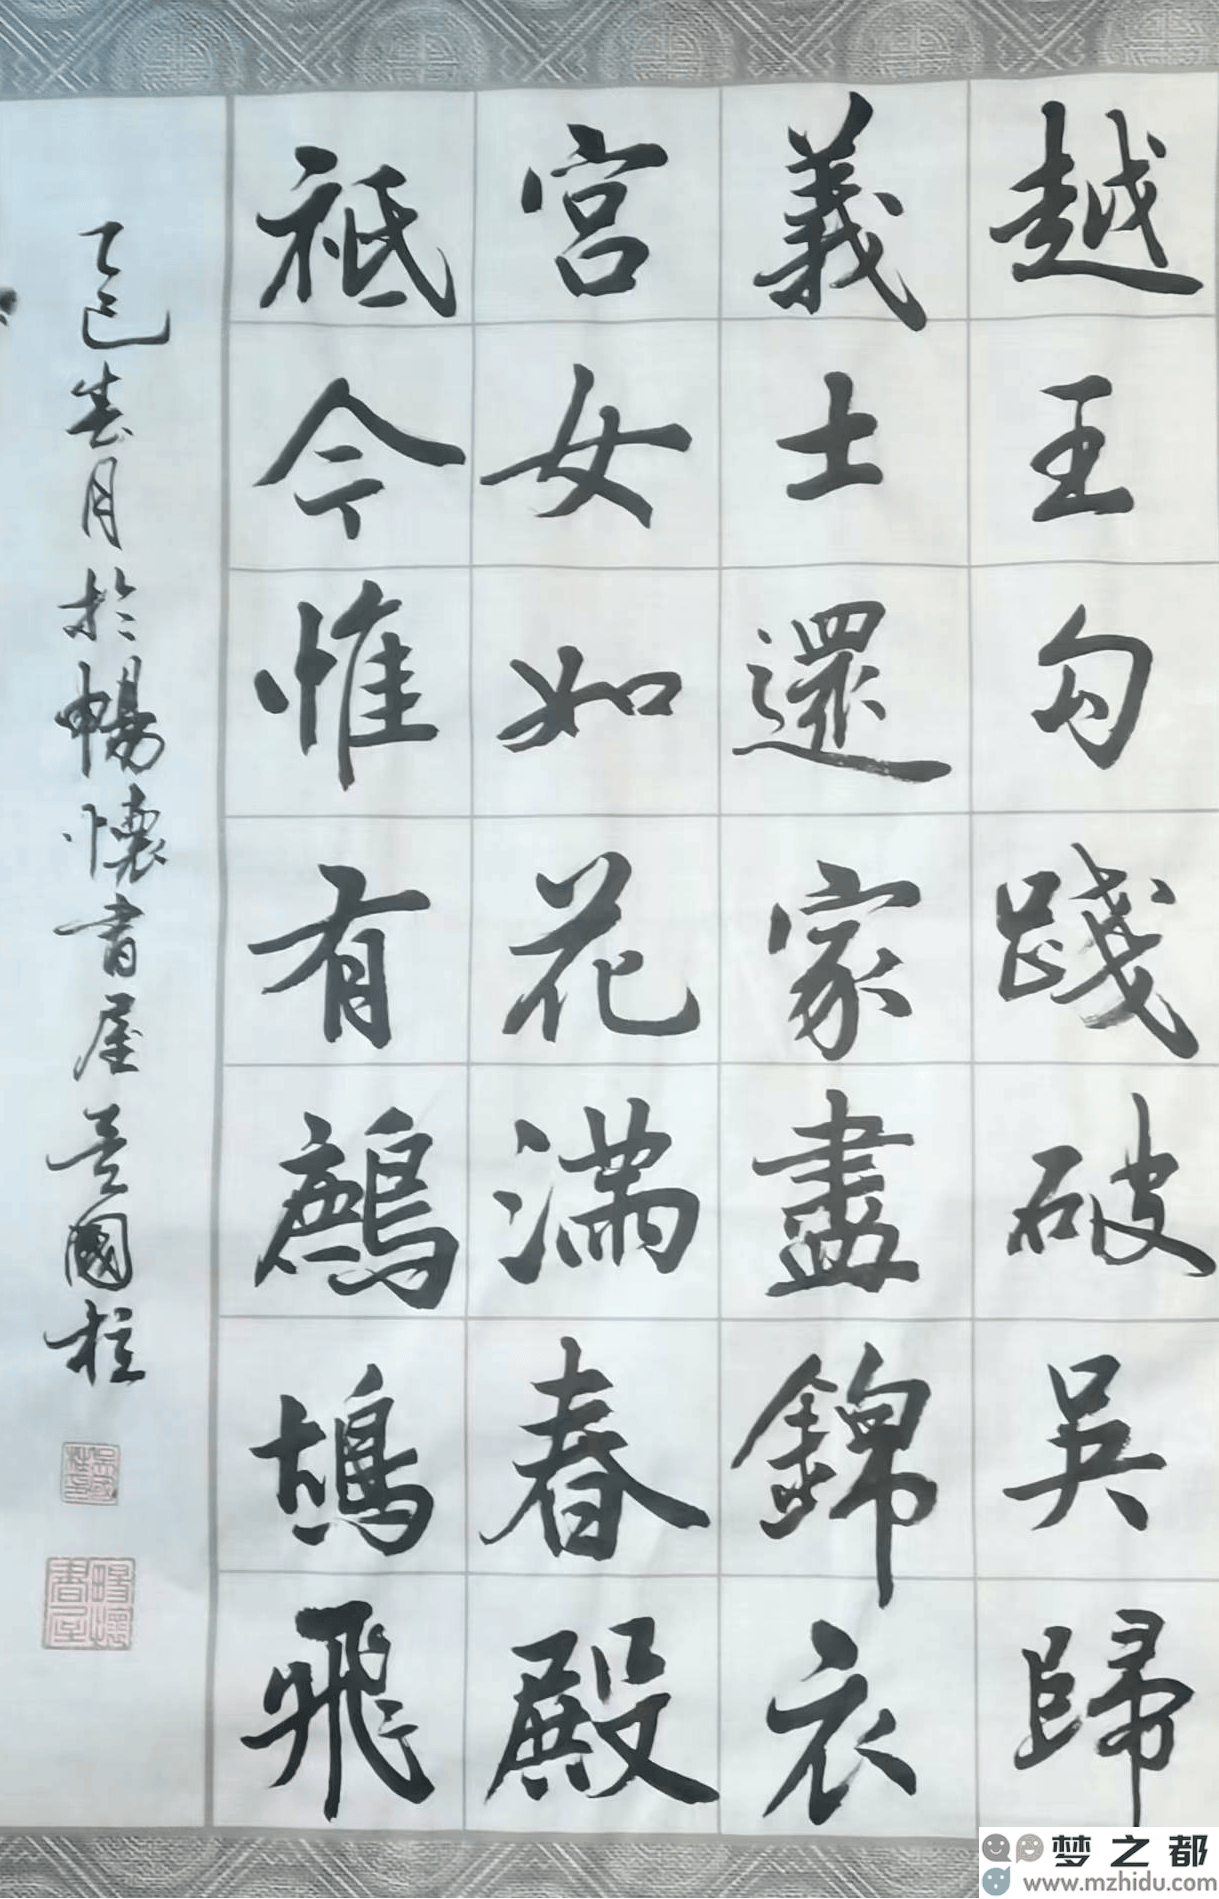 越王勾踐破吳歸
義士還家盡錦衣
宮女如花滿春殿
祗今惟有鷓鴣飛
乙巳春月於暢懷書屋吳國柱
吳國柱印
暢懷書屋
梦之都
www.mzhidu.com